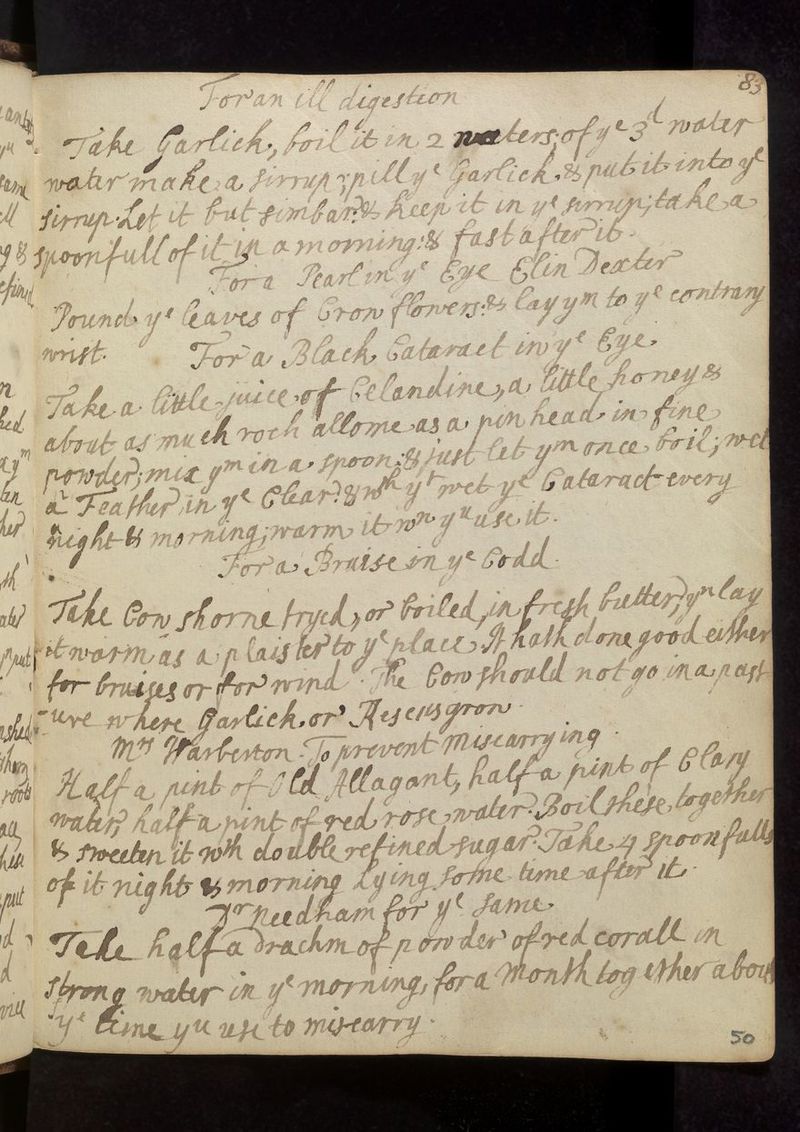 83
For an ill digestion
Take Garlick, boil it in 2 waters, of ye 3d water
water make a sirrup; pill ye Garlick & put it into ye
sirrup. Let it but simbar: & keep it in ye sirrup; take a
spoonfull of it in a morning: & fast after it.
For a Pearl in ye Eye Elin Dexter
Pound ye leaves of Crow flowers: & lay ym to ye contrary
wrist. For a Black Cataract in ye Eye.
Take a little juice of Celandine, a little honey &
about as much roch allome as a pin head in fine
powder; mix ym in a spoon: & just let ym once boil; wet
a Feather in ye Clear: & wth yt wet ye Cataract every
night & morning; warm it wn yu use it.
For a Bruise in ye Codd.
Take Cow shorne fryed, or boiled, in fresh butter, yn lay
it warm as a plaister to ye place. It hath done good either
for bruises or for wind. The Cow should not go in a past
-ure where Garlick or grow.
Mrs Warberton. To prevent Miscarrying.
Half a pint of Old Allagant, half a pint of Clary
water, half a pint of red rose water. Boil these together
& sweeten it wth double refined sugar. Take 4 spoonfulls
of it night & morning lying some time after it.
Dr Needham for ye same
Take half a drachm of powder of red corall in
strong water in ye morning, for a Month together about
ye time yu use to miscarry.
50